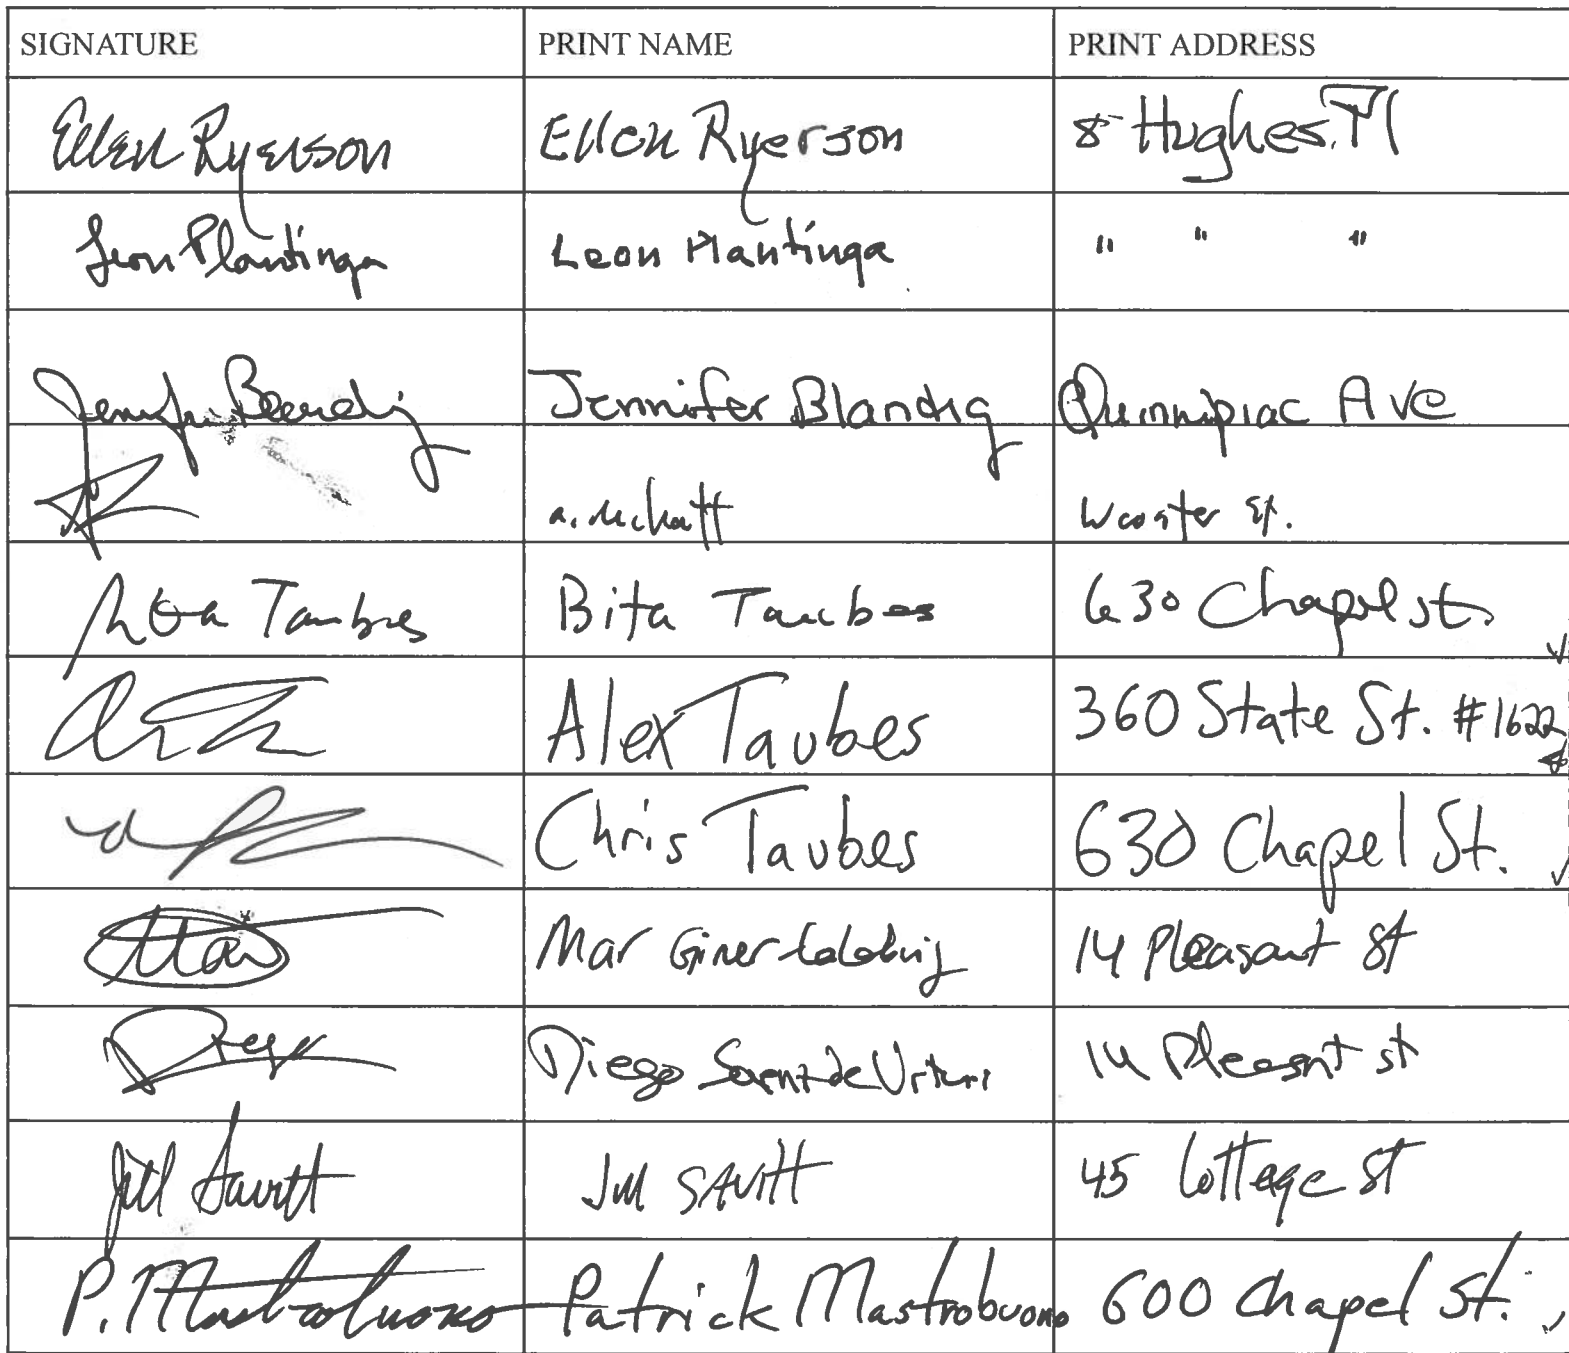 SIGNATURE PRINT NAME PRINT ADDRESS
Ellen Ryerson Ellen Ryerson 8 Hughes Pl
Leon Plantinga Leon Plantinga " " "
Jennifer Blanding Quinnipiac Ave
Wooster St.
Bita Taubes Bita Taubes 630 Chapel St.
Alex Taubes 360 State St. #1622
Chris Taubes 630 Chapel St.
Mar Mar Giner 14 Pleasant St
Diego Diego Saenz de Urturi 14 Pleasant st
Jill Savitt Jill SAVITT 45 Cottage St
P. Mastrobuono Patrick Mastrobuono 600 Chapel St.